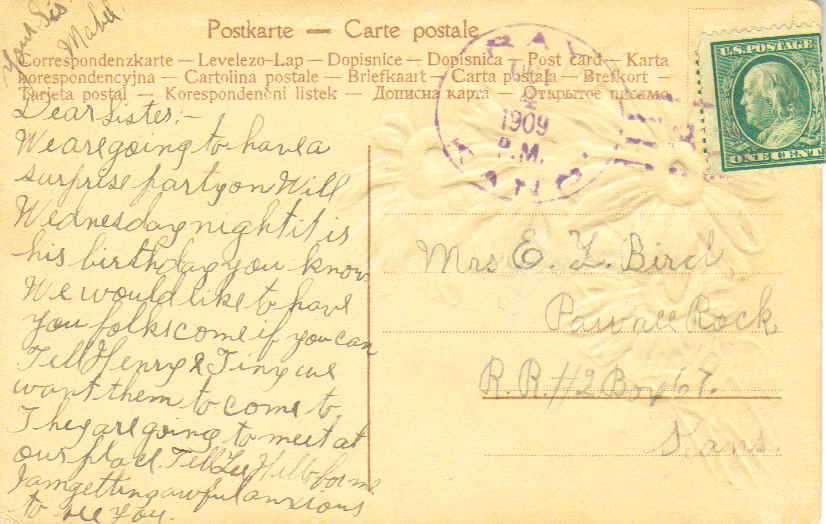 Your Sis
Mabel
Postkarte — Carte postale
Correspondenzkarte — Levelezo-Lap — Dopisnice — Dopisnica — Post card — Karta
korespondencyjna — Cartolina postale — Briefkaart — Carta postala — Brefkort —
Tarjeta postal — Korespondenčni listek — Дописна карта — Открытое письмо
U.S. POSTAGE
ONE CENT
1909
P.M.
Dear Sister:-
We are going to have a
surprise party on Will
Wednesday night it is
his birthday you know.
We would like to have
you folks come if you can
Tell Henry & Tiny we
want them to come to.
They are going to meet at
our place. Tell
I am getting awful anxious
to see you.
Mrs E. L. Bird
Pawnee Rock
R.R. #2 Box 67.
Kans.